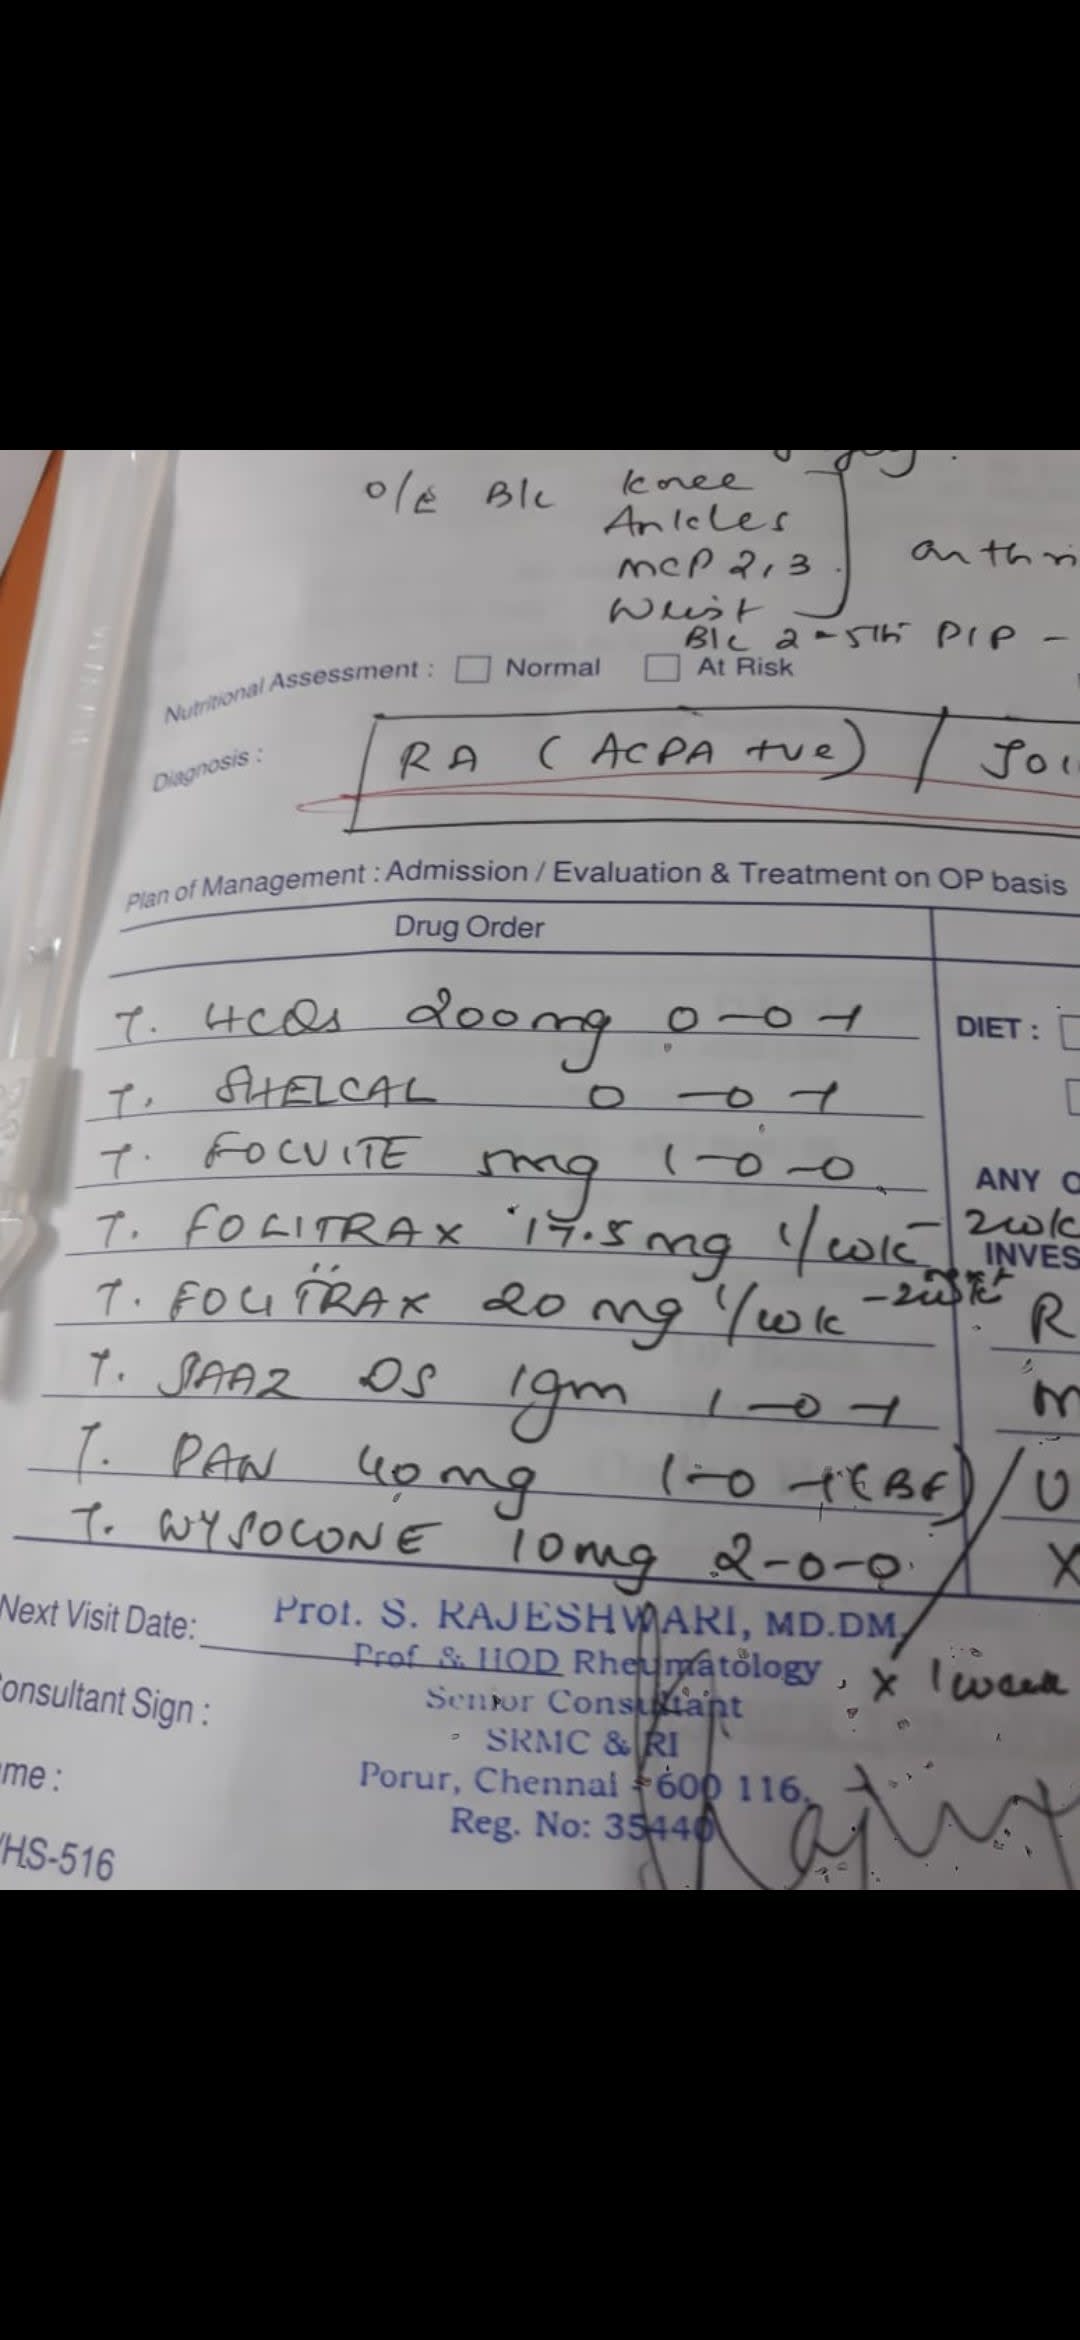 O/E B/L Knee
Ankles
MCP 2,3
Wrist
arthri
B/L 2-5th PIP -
Nutritional Assessment : Normal At Risk
Diagnosis :
RA (ACPA +ve) / Joi
Plan of Management : Admission / Evaluation & Treatment on OP basis
Drug Order
T. HCQs 200mg 0-0-1
DIET :
T. SHELCAL 0-0-1
T. FOLVITE 5mg 1-0-0
ANY O
T. FOLITRAX 17.5mg 1/wk - 2wk
INVES
T. FOLITRAX 20mg 1/wk - 2wk
R
T. SAAZ DS 1gm 1-0-1
m
T. PAN 40mg 1-0-1 (BF)
U
T. WYSOLONE 10mg 2-0-0
X
x 1 week
Next Visit Date:
Prof. S. RAJESHWARI, MD.DM,
Prof & HOD Rheumatology
onsultant Sign :
Senior Consultant
SRMC & RI
me :
Porur, Chennai - 600 116.
Reg. No: 35440
HS-516